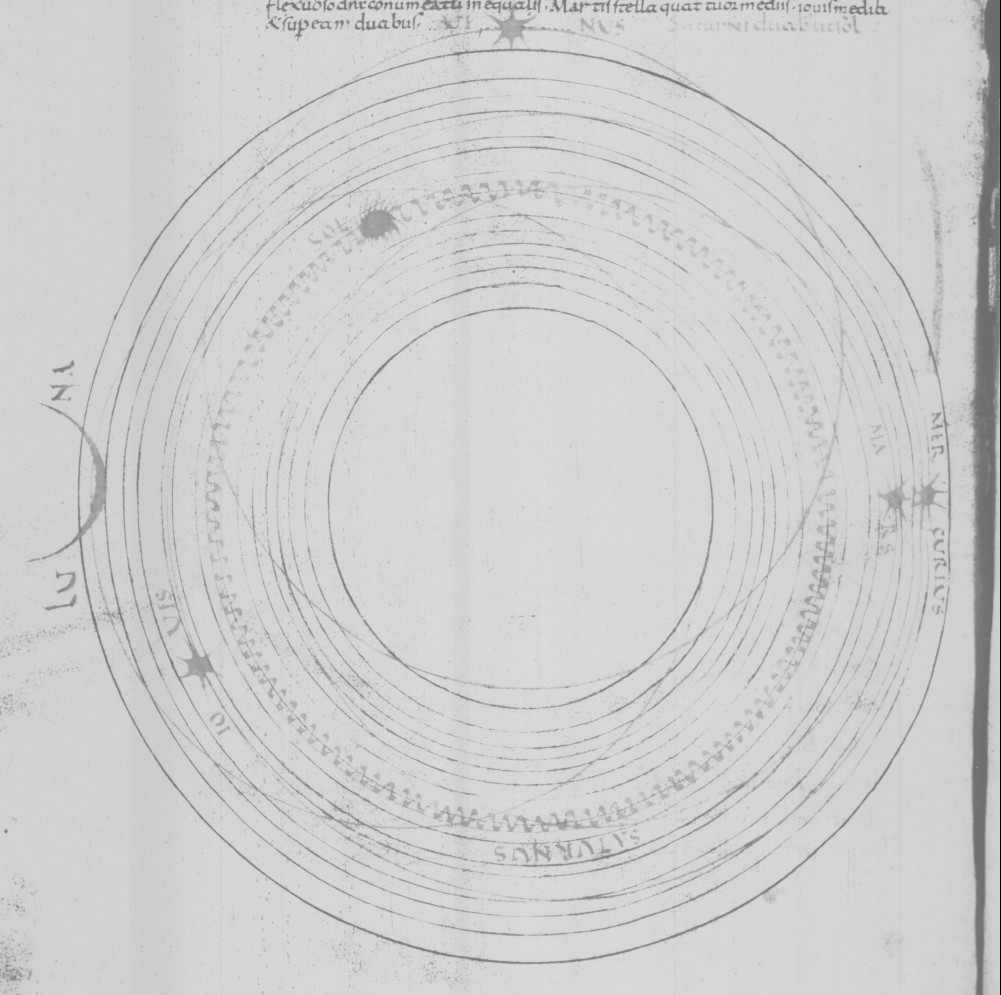 flexuoso dnr conuneatu inequalis. Martis stella quattuor mediis. iouis media
& supeam duabus. Saturni duabus sol
VE NUS
SOL
LU NA
MA RS
MER CURIUS
IO VIS
SATURNUS